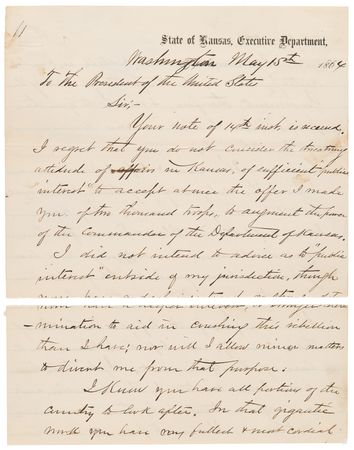 State of Kansas, Executive Department,
Washington May 15th 1864
To the President of the United States
Sir;-
Your note of 14th inst. is received.
I regret that you do not consider the threatening
attitude of affairs in Kansas, of sufficient "public
interest" to accept at once the offer I made
you of two thousand troops, to augment the power
of the Commander of the Department of Kansas.
I did not intend to advise as to "public
interest" outside of my jurisdiction, though
-mination to aid in crushing this rebellion
than I have; nor will I allow minor matters
to divert me from that purpose.
I know you have all portions of the
country to look after. In that gigantic
work you have my fullest & most cordial